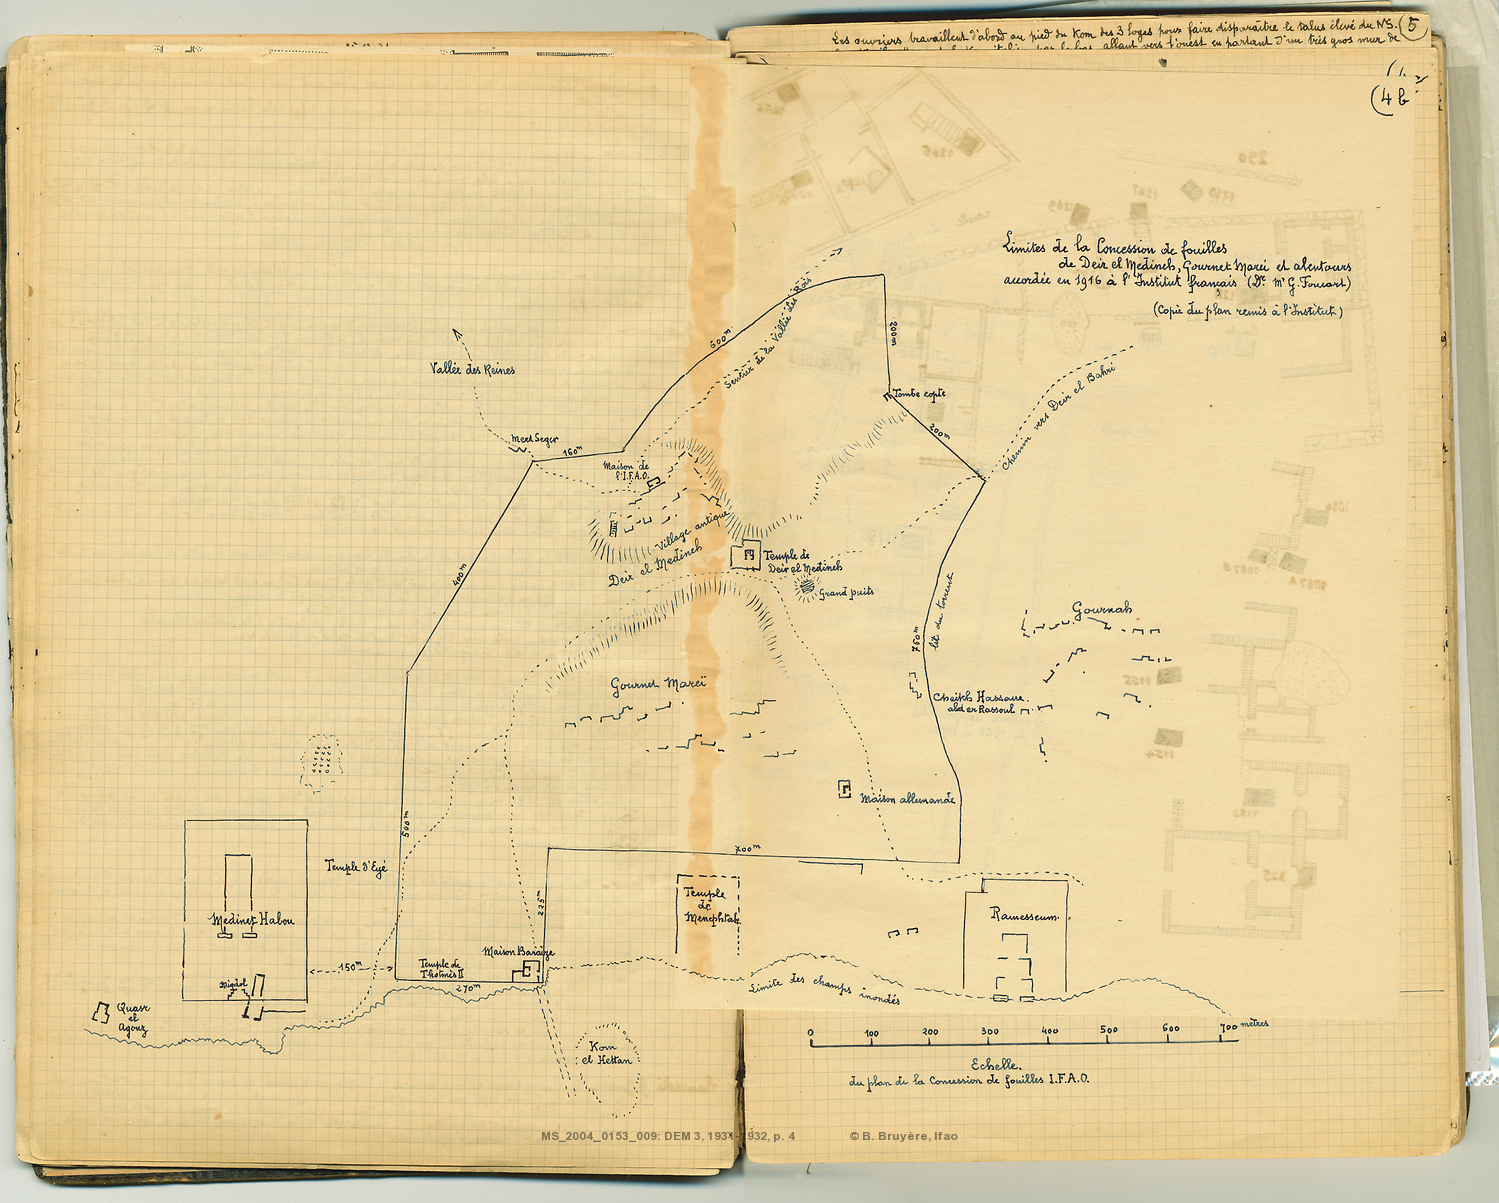 Les ouvriers travaillent d'abord au pied du Kom des 3 loges pour faire disparaître le talus élevé du NS.
5
allant vers l'ouest en partant d'un très gros mur de
(4 b
Limites de la Concession de fouilles
de Deir el Medineh, Gournet Mareï et alentours
accordée en 1916 à l'Institut français (Dr. Mr G. Foucart)
(Copie du plan remis à l'Institut)
Vallée des Reines
600m
Sentier de la Vallée des Rois
200m
Tombe copte
200m
Chemin vers Deir el Bahri
Meret Seger
160m
Maison de
l'I.F.A.O.
Village antique
Deir el Medineh
Temple de
Deir el Medineh
Grand puits
400m
750m
lit du torrent
Gournah
Gournet Mareï
Cheikh Hassane
abd er Rassoul
Maison allemande
500m
700m
Temple d'Eyé
Medinet Habou
Temple
de
Menephtah
Ramesseum
225m
Maison Baraize
150m
Temple de
Thotmès II
270m
Migdol
Limite des champs inondés
Quasr
el
Agouz
Kom
el Hettan
0 100 200 300 400 500 600 700 mètres
Echelle.
du plan de la Concession de fouilles I.F.A.O.
290
1267
1210
1269
1265
1087 B
1087 A
1155
1154
1153
325
MS_2004_0153_009: DEM 3, 1931-1932, p. 4 © B. Bruyère, Ifao